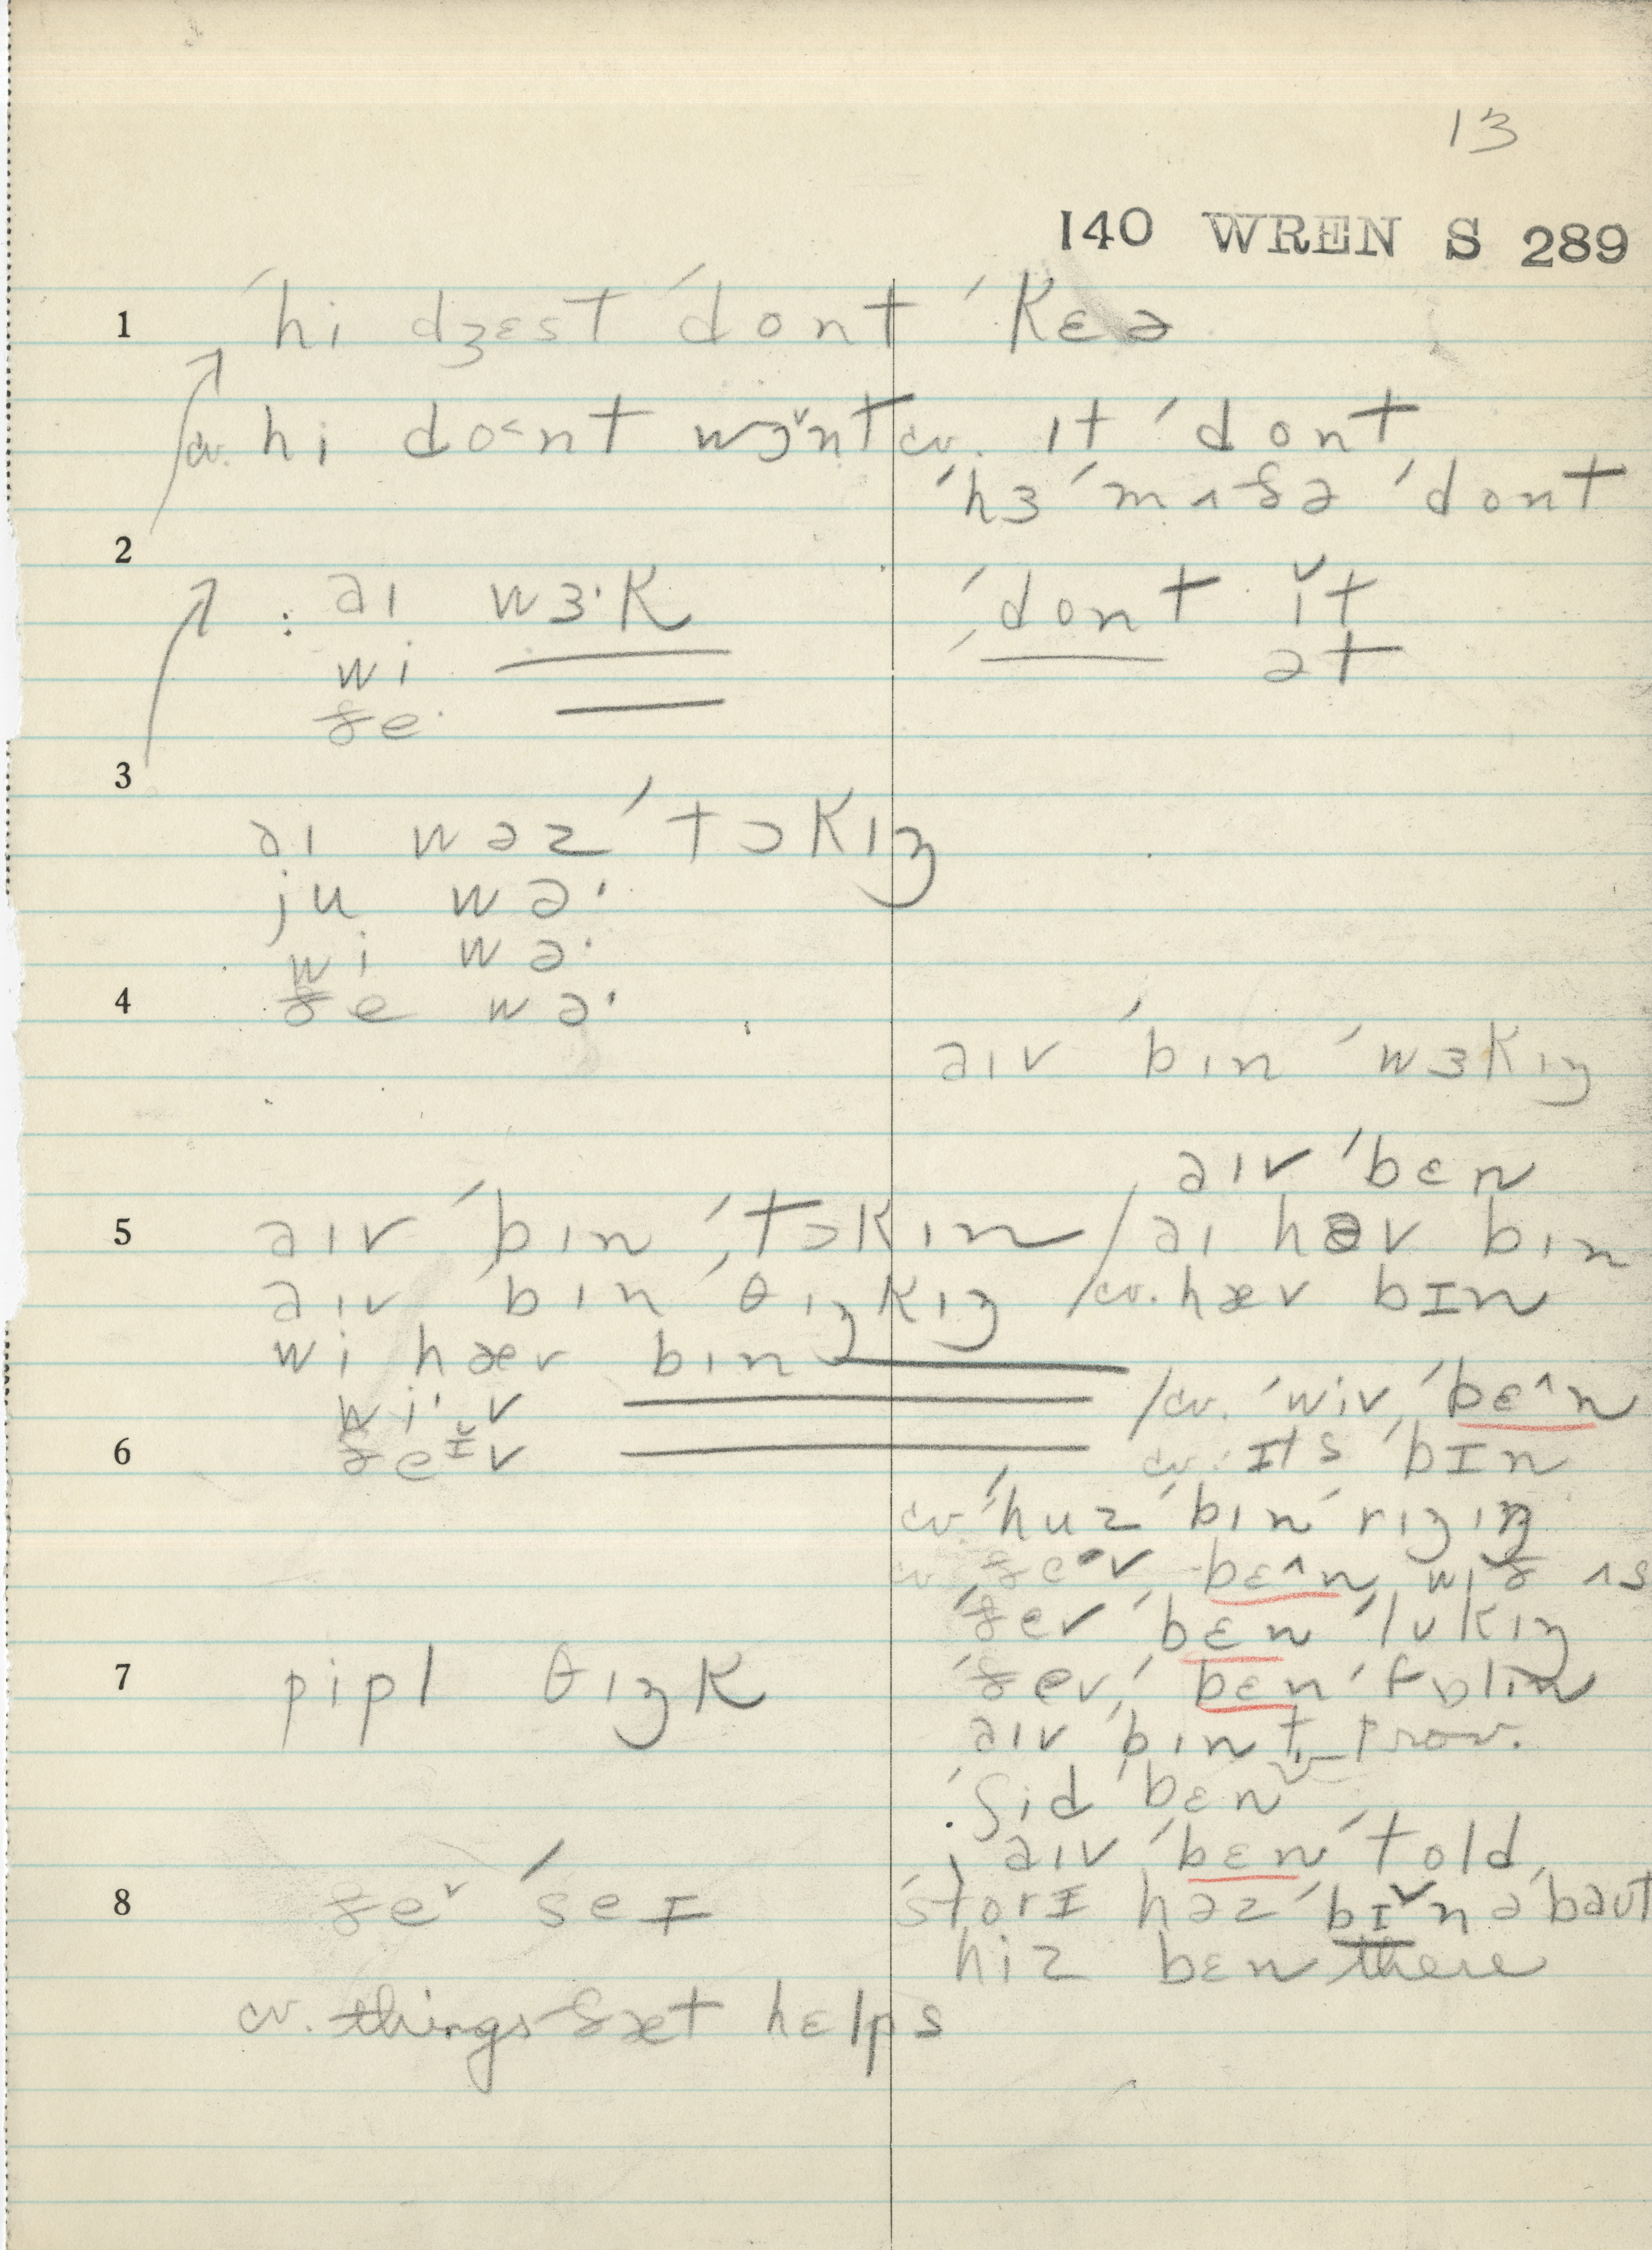 13
140 WREN S 289
1 ˈhi dʒɛst ˈdont ˈkɛə
cv. hi do˂nt wɔ̌nt cv. ɪt ˈdont
ˈhɜ ˈmʌðə ˈdont
2
: aɪ wɜ·k ˈdont ɪ̌t
wi ət
ðe·
3
aɪ wəz ˈtɔkɪŋ
ju wə·
wi wə·
4 ðe wə·
aɪv ˈbɪn ˈwɜkɪŋ
aɪv ˈbɛn
5 aɪv ˈbɪn ˈtɔkɪn / aɪ həv bɪn
aɪv ˈbɪn ˈθɪŋkɪŋ / cv. hæv bɪn
wi hæv bɪn
wi·v / cv. ˈwiv ˈbɛ^n
6 ðeɪ̆v cv. ɪts ˈbɪn
cv. ˈhuz ˈbɪn
cv. ðe·v bɛ^n wɪð ʌs
ˈðev ˈbɛn ˈlʊkɪŋ
7 pipl θɪŋk ˈðev ˈbɛn
aɪv ˈbɪn
ˈʃid ˈbɛn
aɪv ˈbɛn ˈtold
8 ðe˅ ˈseɪ ˈstorɪ həz ˈbɪ˅n əˈbaut
hiz bɛn there
cv. things ðæt hɛlps